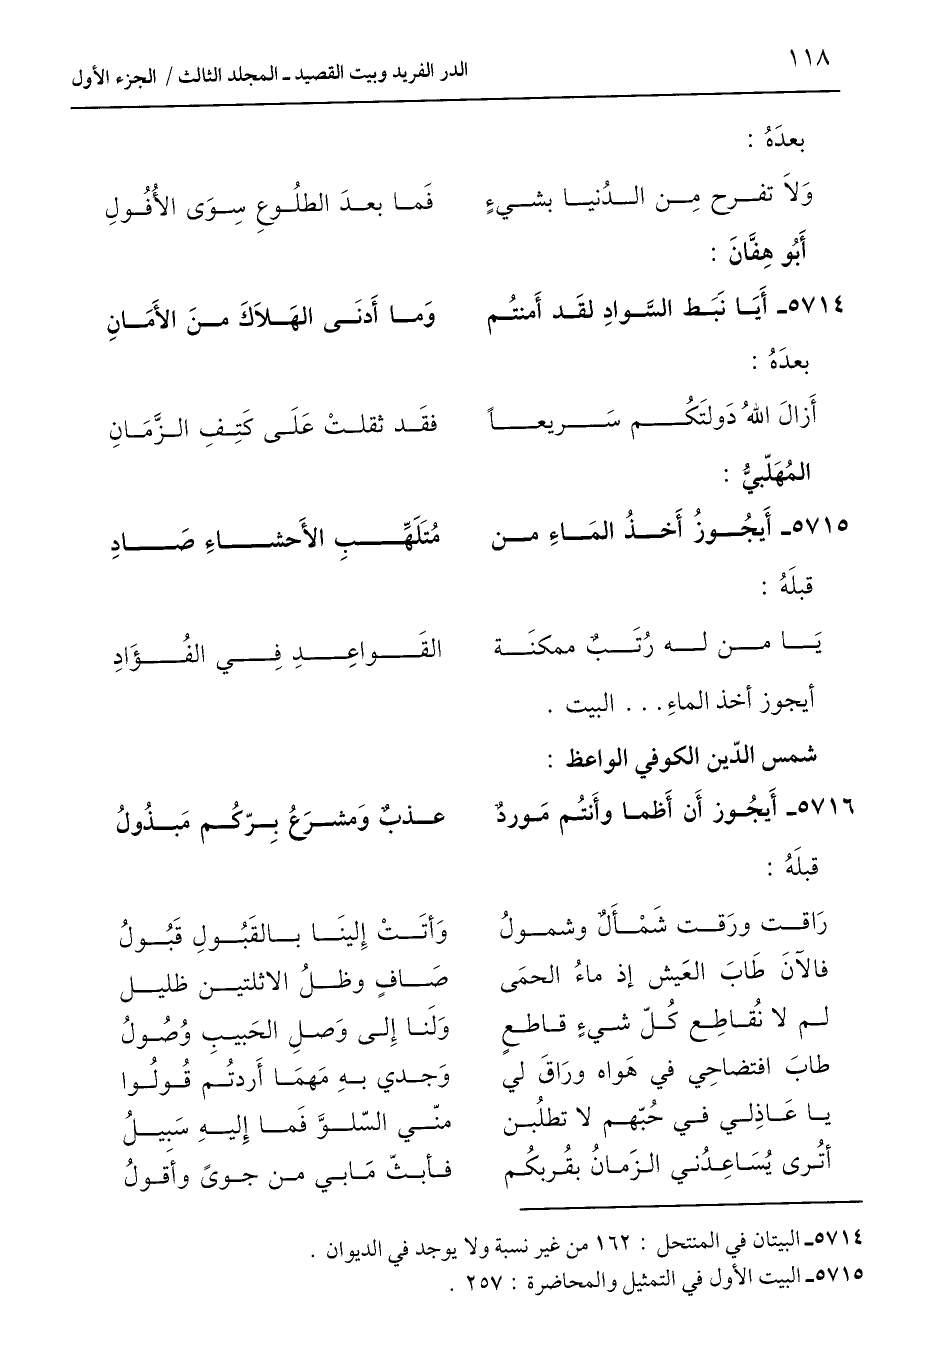 ١١٨
الدر الفريد وبيت القصيد ـ المجلد الثالث / الجزء الأول
بعدَهُ :
وَلاَ تفـرح مِـن الـدُنيـا بشـيءٍ فَمـا بعـدَ الطلُـوعِ سِـوَى الأُفُـولِ
أَبُو هِفَّانَ :
٥٧١٤ـ أَيَـا نَبَـط السَّـوادِ لقَـد أَمنتُـم وَمـا أَدنَـى الهَـلاَكَ مـنَ الأَمَـانِ
بعدَهُ :
أَزالَ اللهُ دَولتَكُـم سَـريعـاً فقَـد ثقلـتْ عَلَـى كَتِـفِ الـزَّمَـانِ
المُهَلّبيُّ :
٥٧١٥ـ أَيجُـوزُ أَخـذُ المَـاءِ مـن مُتَلَهِّـبِ الأَحشـاءِ صَـادِ
قبلَهُ :
يَـا مـن لـه رُتَـبٌ ممكنَـة القَـواعِـدِ فِـي الفُـؤَادِ
أيجوز أخذ الماءِ . . . البيت .
شمس الدّين الكوفي الواعظ :
٥٧١٦ـ أَيجُـوز أَن أَظمـا وأَنتُـم مَـوردٌ عـذبٌ وَمشـرَعُ بِـرّكُـم مَبـذُولُ
قبلَهُ :
رَاقـت ورَقـت شَمْـأَلٌ وشمـولُ وَأتَـتْ إلينَـا بـالقَبُـولِ قَبُـولُ
فالآنَ طَابَ العَيش إذ ماءُ الحمَى صَـافٍ وظـلُ الاثلتيـن ظليـل
لـم لا نُقـاطِـع كُـلّ شـيءٍ قـاطـعٍ وَلَنـا إلـى وَصـلِ الحَبيـبِ وُصُـولُ
طابَ افتضاحِي في هواه ورَاقَ لي وَجـدي بـهِ مَهمَـا أَردتُـم قُـولُـوا
يـا عَـاذِلـي فـي حُبّهـم لا تطلُبـن منّـي السّلـوَّ فَمـا إليـهِ سَبيـلُ
أَتُرى يُسَاعِدُني الـزَمانُ بقُربكُـم فـأبـثّ مَـابـي مـن جـوىً وأقـولُ
٥٧١٤ـ البيتان في المنتحل : ١٦٢ من غير نسبة ولا يوجد في الديوان .
٥٧١٥ـ البيت الأول في التمثيل والمحاضرة : ٢٥٧ .